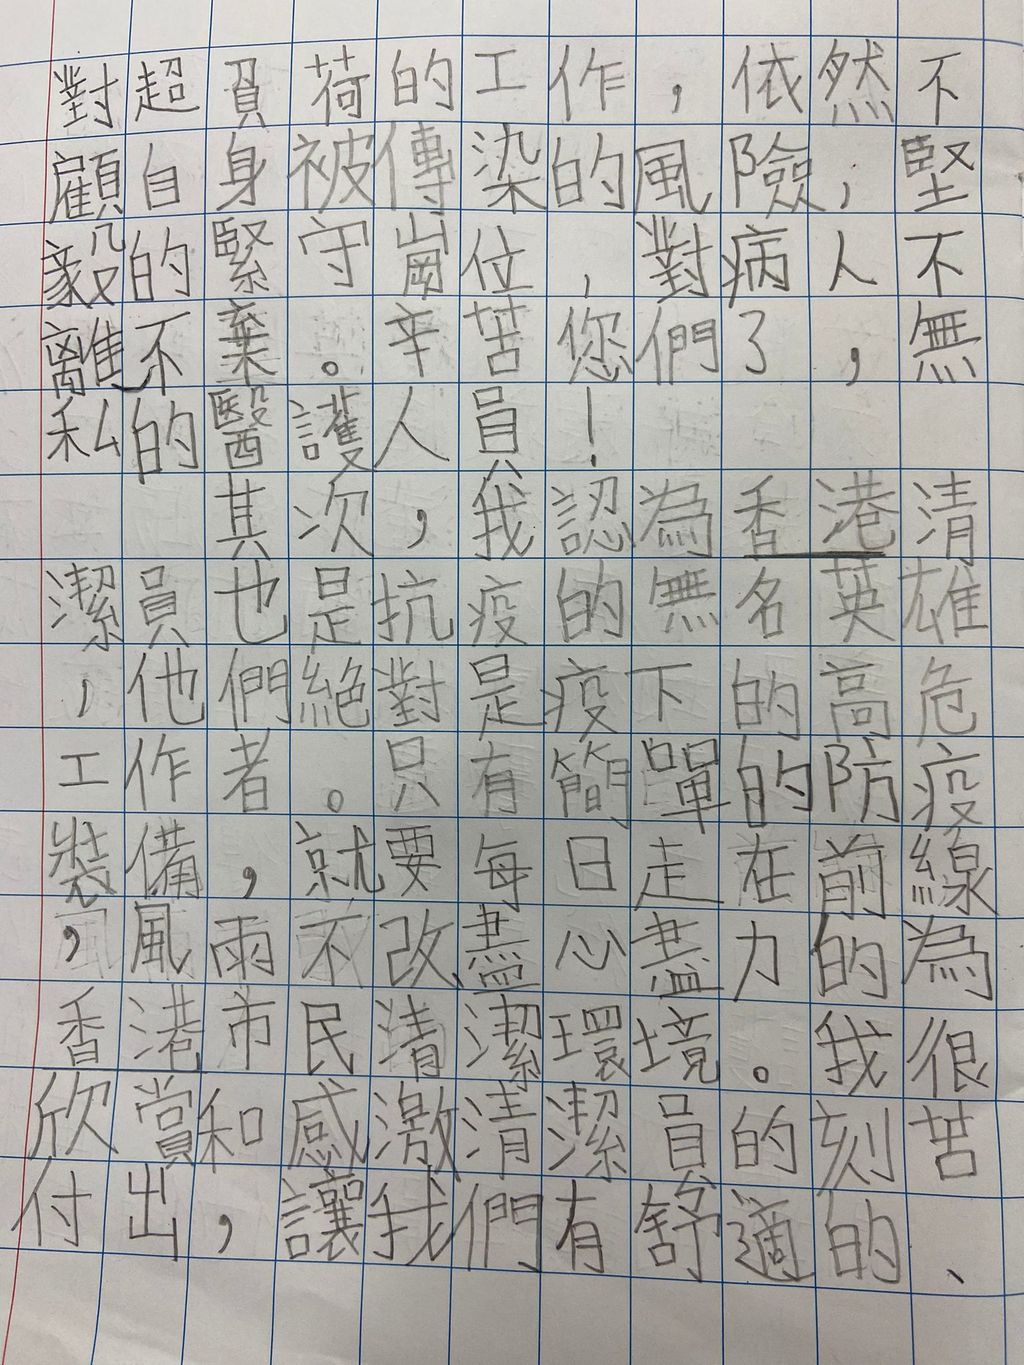 對超負荷的工作，依然不
顧自身被傳染的風險，堅
毅的緊守崗位，對病人不
離不棄。辛苦您們了，無
私的醫護人員！
其次，我認為香港清
潔員也是抗疫的無名英雄
，他們絕對是疫下的高危
工作者。只有簡單的防疫
裝備，就要每日走在前線
，風雨不改、盡心盡力的為
香港市民清潔環境。我很
欣賞和感激清潔員的刻苦
付出，讓我們有舒適的、